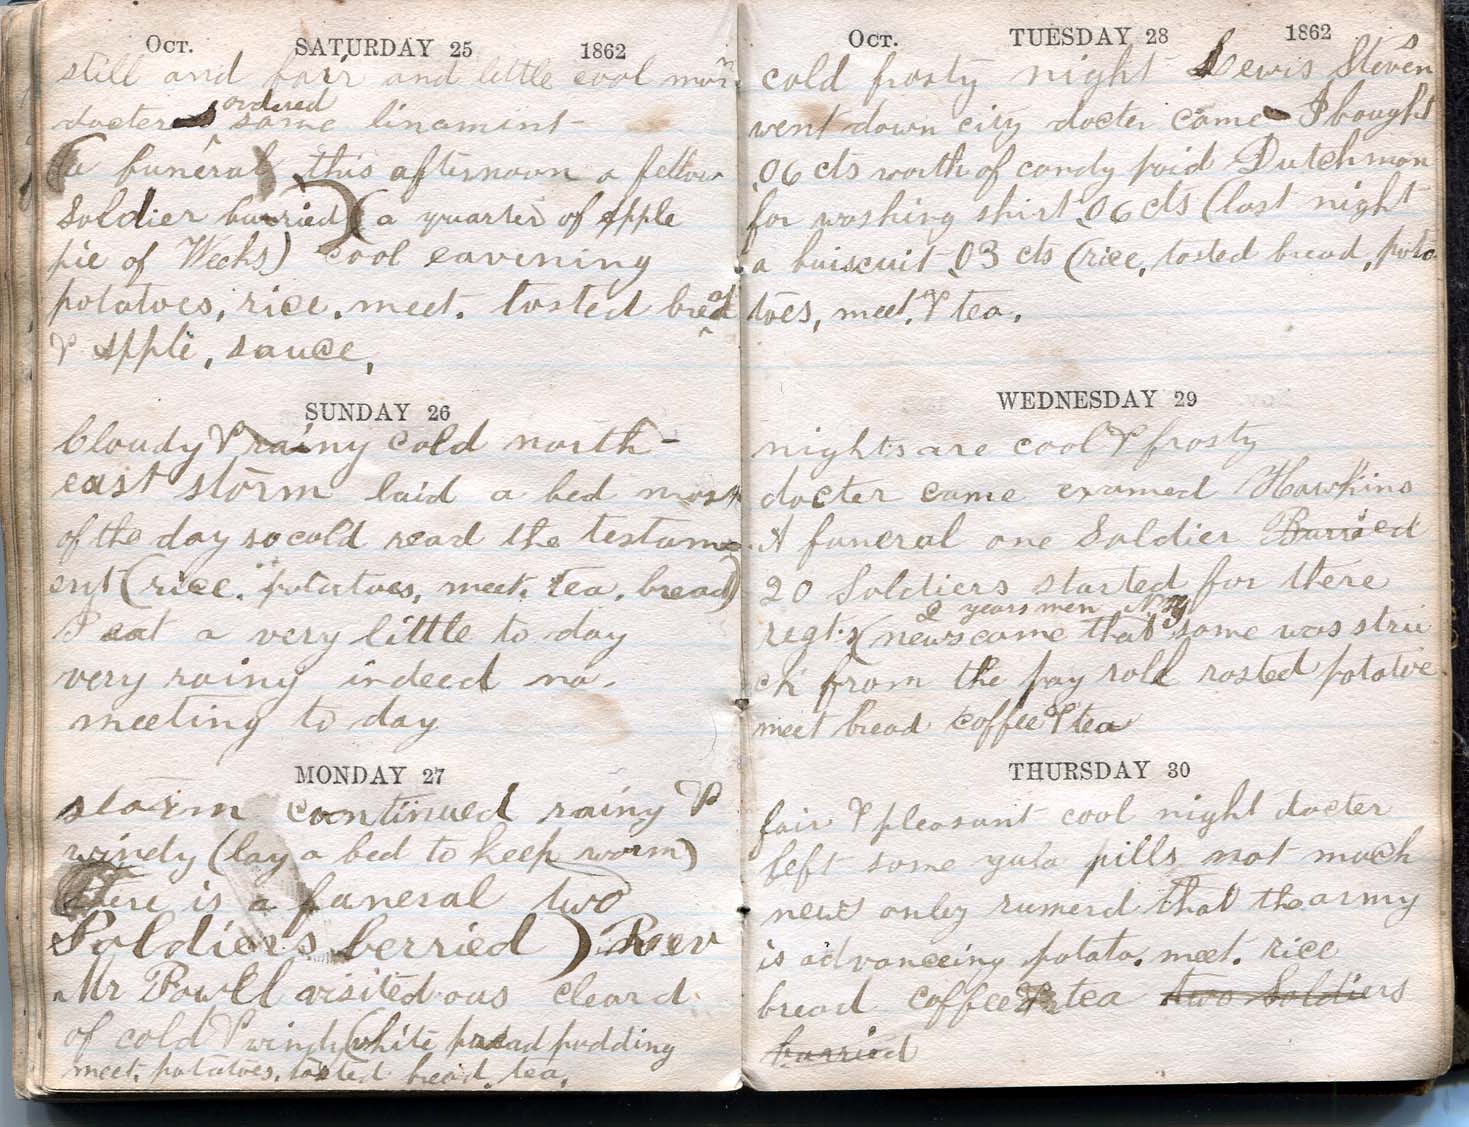 Oct. SATURDAY 25 1862
still and fair and little cool morn
docter ordered some linamint
(a funeral) this afternoon a fellow
Soldier burried) (a quarter of apple
pie of Weeks) cool eavening
potatoes, rice. meet. tosted bread
& apple, sauce,
SUNDAY 26
Cloudy & rainy cold north-
east storm laid a bed most
of the day so cold read the testam
ent (rice. potatoes, meet. tea. bread)
I eat a very little to day
very rainy indeed no.
meeting to day
MONDAY 27
storm continued rainy &
windy (lay a bed to keep worm)
there is a funeral two
Soldiers berried) Rev
Mr Powell visited ous cleard
of cold & windy (white bread pudding
meet. potatoes. tosted bread. tea.
Oct. TUESDAY 28 1862
cold frosty night Lewis Steven
went down city docter came I bought
.06 cts worth of candy paid Dutchman
for washing shirt .06 cts (last night
a buiscuit .03 cts (rice, tosted bread, pota
toes, meet. & tea.
WEDNESDAY 29
nights are cool & frosty
docter came examed Hawkins
A funeral one Soldier Burried
20 Soldiers started for there
2 years men N.Y
regts (news came that some was stru
ck from the pay roll rosted potatoe
meet bread coffee & tea
THURSDAY 30
fair & pleasant cool night docter
left some pills not much
news only rumerd that the army
is advanceing potato. meet. rice
bread coffee & tea two Soldiers
burried